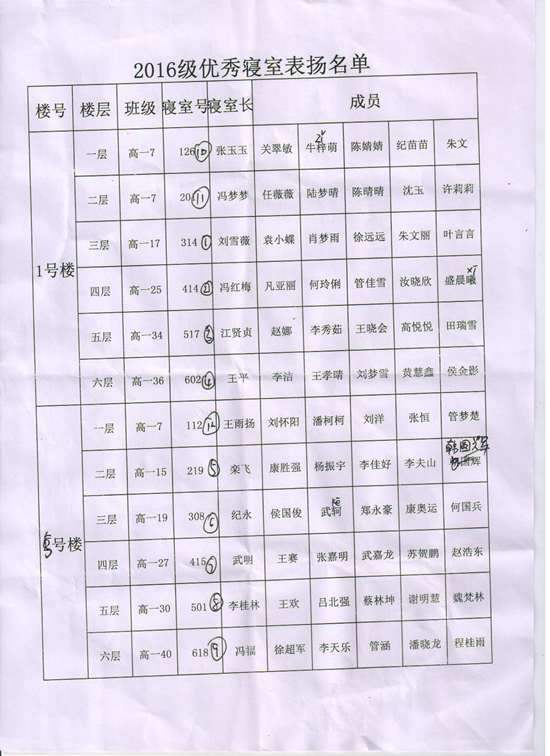 2016级优秀寝室表扬名单
楼号 楼层 班级 寝室号 寝室长 成员
1号楼
一层 高一-7 126 ⑩ 张玉玉 关翠敏 牛梓萌 陈婧婧 纪苗苗 朱文
二层 高一-7 201 ⑪ 冯梦梦 任薇薇 陆梦晴 陈晴晴 沈玉 许莉莉
三层 高一-17 314 ① 刘雪薇 袁小蝶 肖梦雨 徐远远 朱文丽 叶言言
四层 高一-25 414 ② 冯红梅 凡亚丽 何玲俐 管佳雪 汝晓欣 盛晨曦
五层 高一-34 517 ③ 江贤贞 赵娜 李秀茹 王晓会 高悦悦 田瑞雪
六层 高一-36 602 ④ 王平 李洁 王孝晴 刘梦雪 黄慧鑫 侯金影
号楼
一层 高一-7 112 ⑫ 王雨扬 刘怀阳 潘柯柯 刘洋 张恒 管梦楚
二层 高一-15 219 ⑤ 栾飞 康胜强 杨振宇 李佳好 李夫山 韩国辉
三层 高一-19 308 ⑥ 纪永 侯国俊 武轲 郑永豪 康奥运 何国兵
四层 高一-27 415 ⑦ 武明 王赛 张嘉明 武嘉龙 苏贺鹏 赵浩东
五层 高一-30 501 ⑧ 李桂林 王欢 吕北强 蔡林坤 谢明慧 魏梵林
六层 高一-40 618 ⑨ 冯福 徐超军 李天乐 管涵 潘晓龙 程桂雨